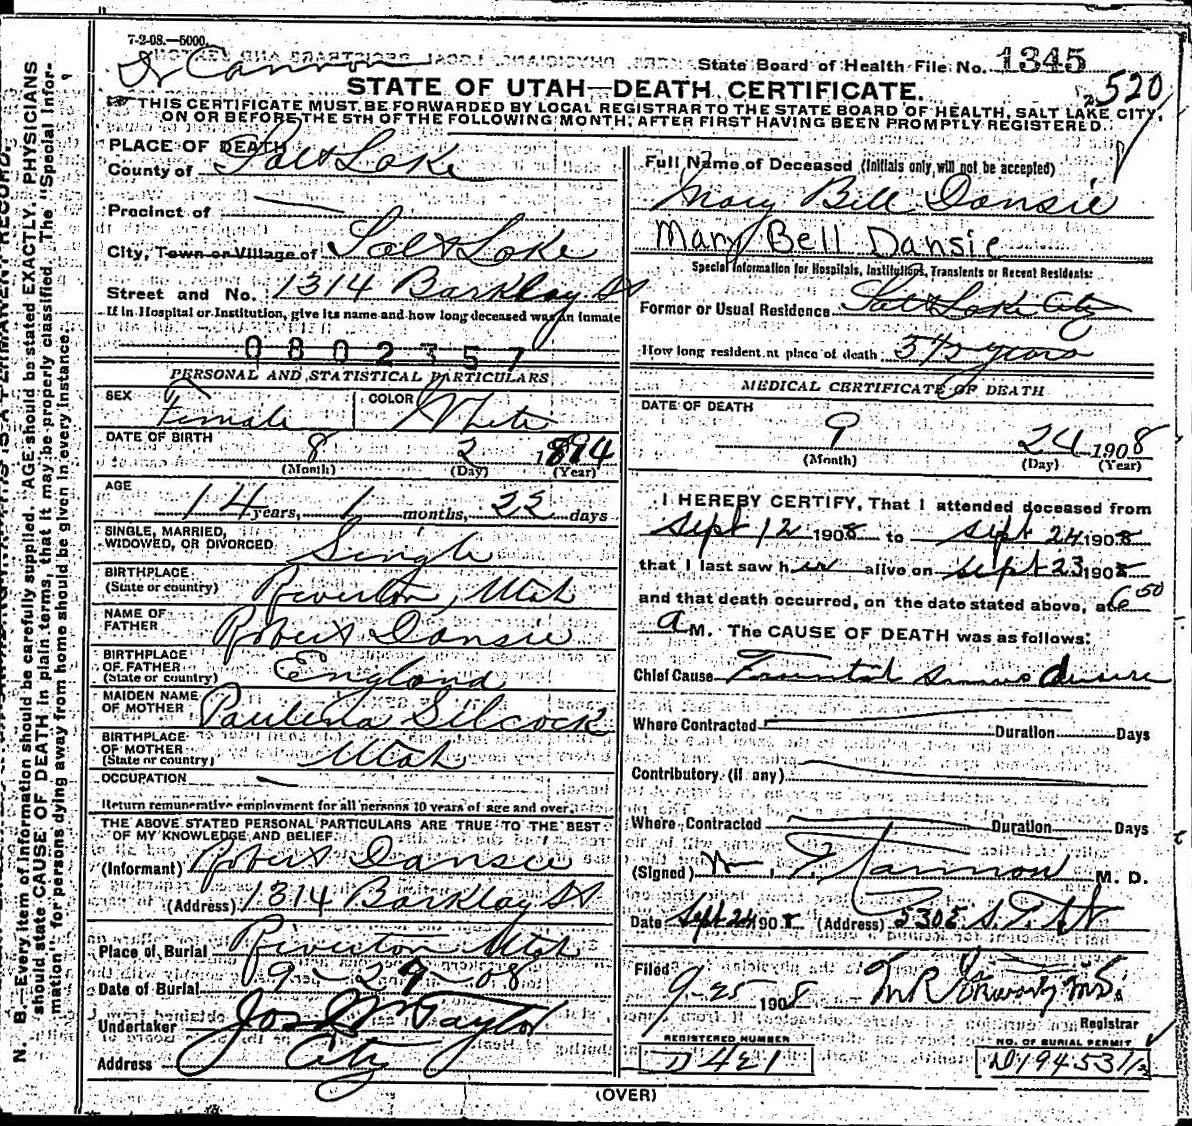 7-2-08.—5000.
Dr Cannon
State Board of Health File No. 1345
520
STATE OF UTAH—DEATH CERTIFICATE.
THIS CERTIFICATE MUST BE FORWARDED BY LOCAL REGISTRAR TO THE STATE BOARD OF HEALTH, SALT LAKE CITY,
ON OR BEFORE THE 5TH OF THE FOLLOWING MONTH, AFTER FIRST HAVING BEEN PROMPTLY REGISTERED.
PLACE OF DEATH
County of Salt Lake
Precinct of
City, Town or Village of Salt Lake
Street and No. 1314 Barkley St
If in Hospital or Institution, give its name and how long deceased was an inmate
0802357
PERSONAL AND STATISTICAL PARTICULARS
SEX Female COLOR White
DATE OF BIRTH 8 2 1894
(Month) (Day) (Year)
AGE
14 years, 1 months, 22 days
SINGLE, MARRIED,
WIDOWED, OR DIVORCED Single
BIRTHPLACE
(State or country) Riverton, Utah
NAME OF
FATHER Robert Dansie
BIRTHPLACE
OF FATHER
(State or country) England
MAIDEN NAME
OF MOTHER Paulina Silcock
BIRTHPLACE
OF MOTHER
(State or country) Utah
OCCUPATION —
Return remunerative employment for all persons 10 years of age and over.
THE ABOVE STATED PERSONAL PARTICULARS ARE TRUE TO THE BEST
OF MY KNOWLEDGE AND BELIEF.
(Informant) Robert Dansie
(Address) 1314 Barklay St
Place of Burial Riverton Utah
Date of Burial 9-27-08
Undertaker Jos Wm Taylor
Address City
Full Name of Deceased (Initials only will not be accepted)
Mary Bell Dansie
Mary Bell Dansie
Special Information for Hospitals, Institutions, Transients or Recent Residents:
Former or Usual Residence Salt Lake City
How long resident at place of death 5 1/2 years
MEDICAL CERTIFICATE OF DEATH
DATE OF DEATH
9 24 1908
(Month) (Day) (Year)
I HEREBY CERTIFY, That I attended deceased from
Sept 12 1908 to Sept 24 1908
that I last saw her alive on Sept 23 1908
and that death occurred, on the date stated above, at 6 50
a M. The CAUSE OF DEATH was as follows:
Chief Cause Frontal sinus disease
Where Contracted Duration Days
Contributory (if any)
Where Contracted Duration Days
(Signed) Wm. T. Cannon M. D.
Date Sept 24 1908 (Address) 530 E. S. T. St
Filed 9-25 1908
Registrar
REGISTERED NUMBER
D 421
NO. OF BURIAL PERMIT
D19453 1/2
(OVER)
N. B.—Every item of information should be carefully supplied. AGE should be stated EXACTLY. PHYSICIANS
should state CAUSE OF DEATH in plain terms, that it may be properly classified. The "Special Infor-
mation" for persons dying away from home should be given in every instance.